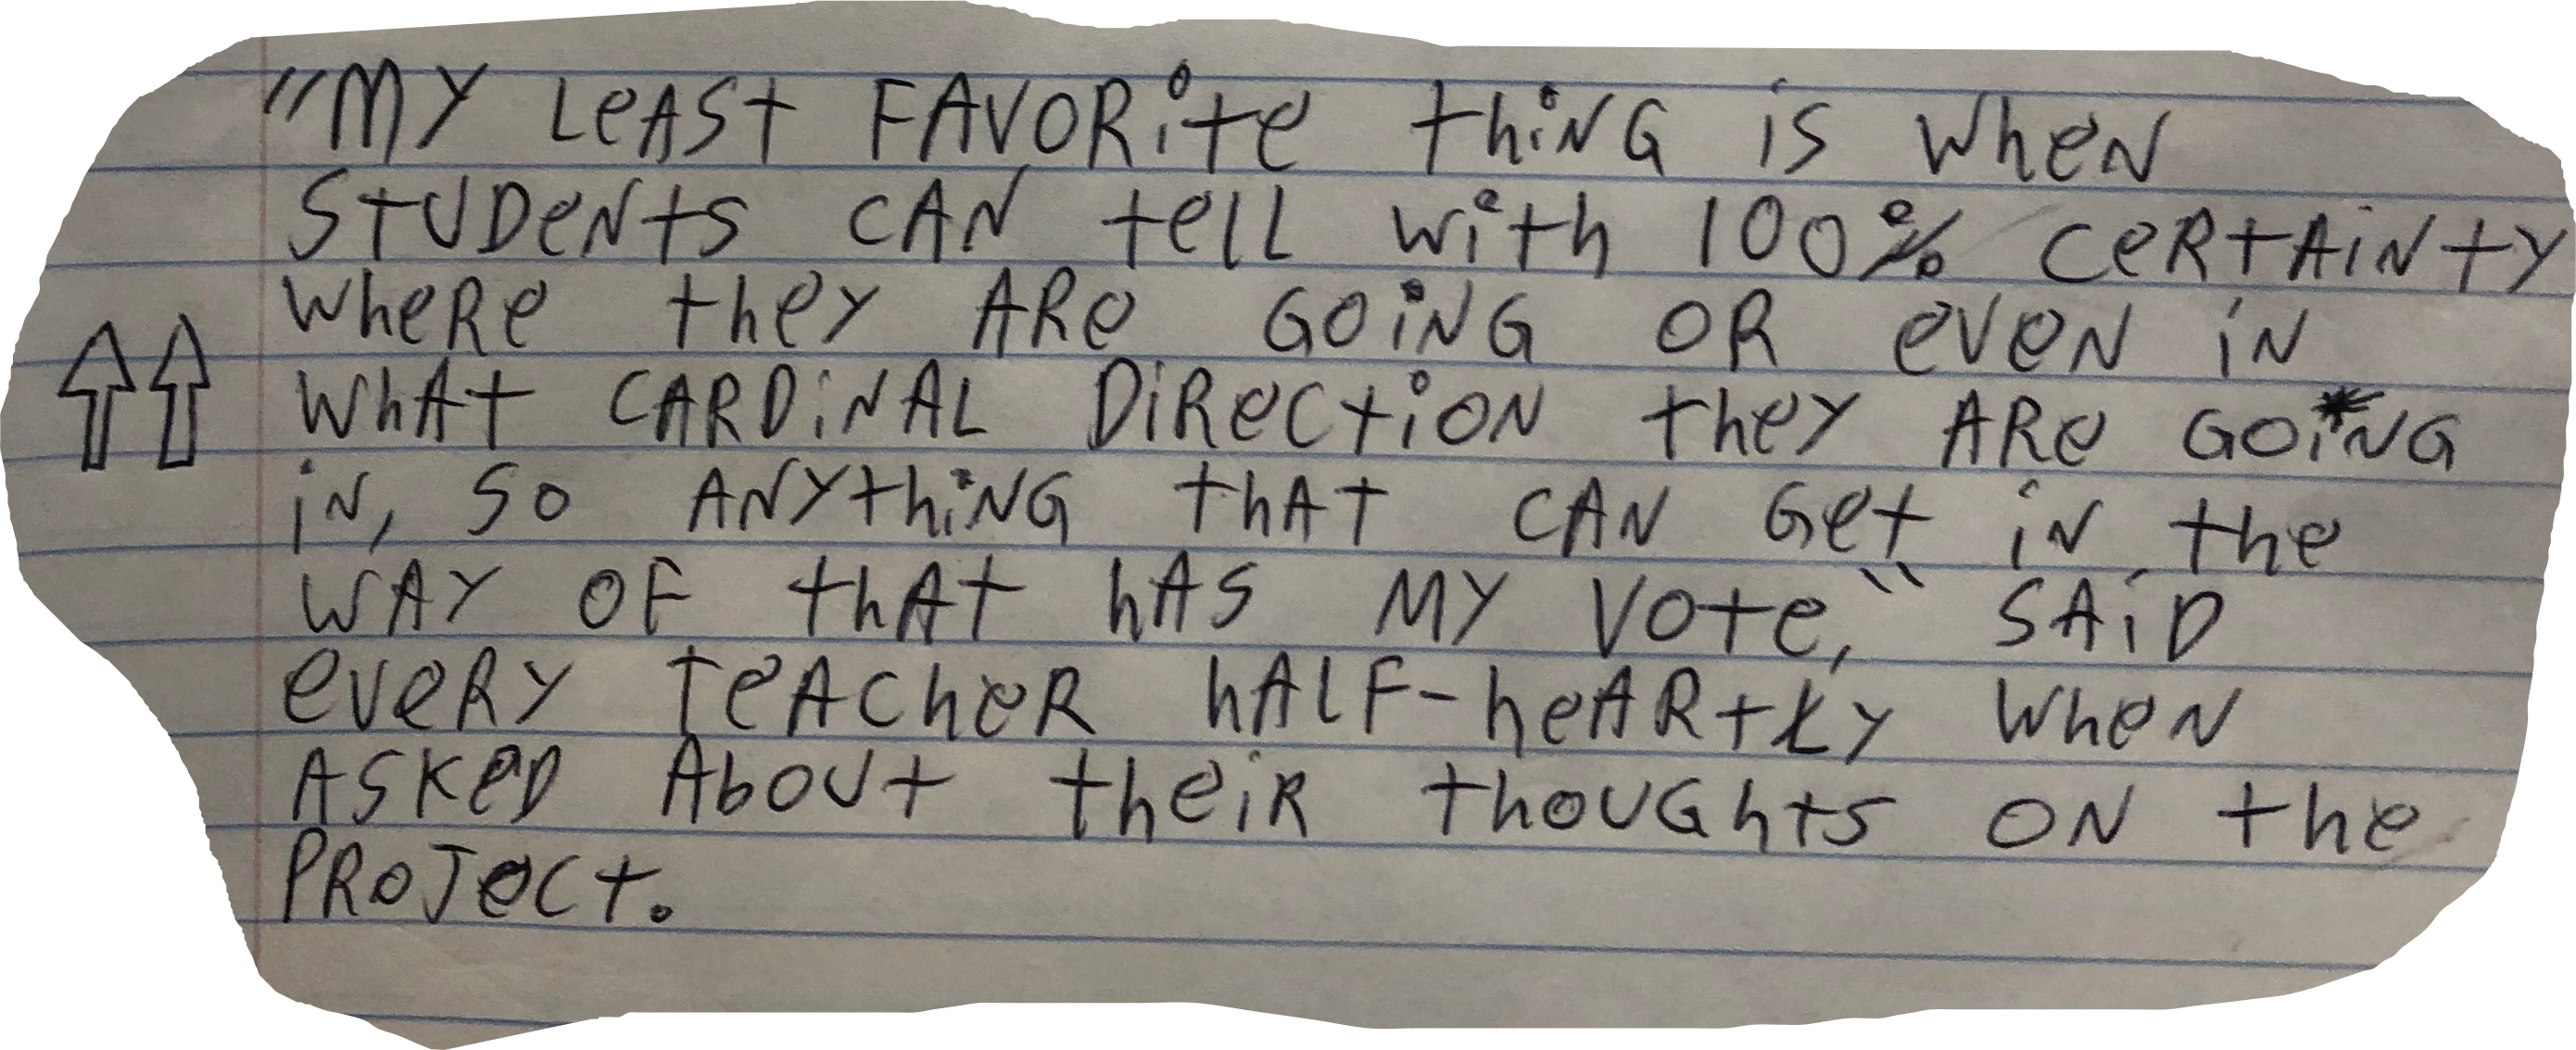 "MY LeAST FAVORite thiNG is wheN
StUDeNts CAN tell with 100% CeRtAiNty
wheRe they ARe GOiNG OR eveN iN
WhAt CARDiNAL DiRectiON they ARe GOiNG
iN, SO ANYthiNG thAt CAN Get iN the
WAY OF thAt hAS MY Vote," SAiD
eveRY teACheR hALF-heARtLy wheN
ASKeD AboUt theiR thoUGhts ON the
PROJect.